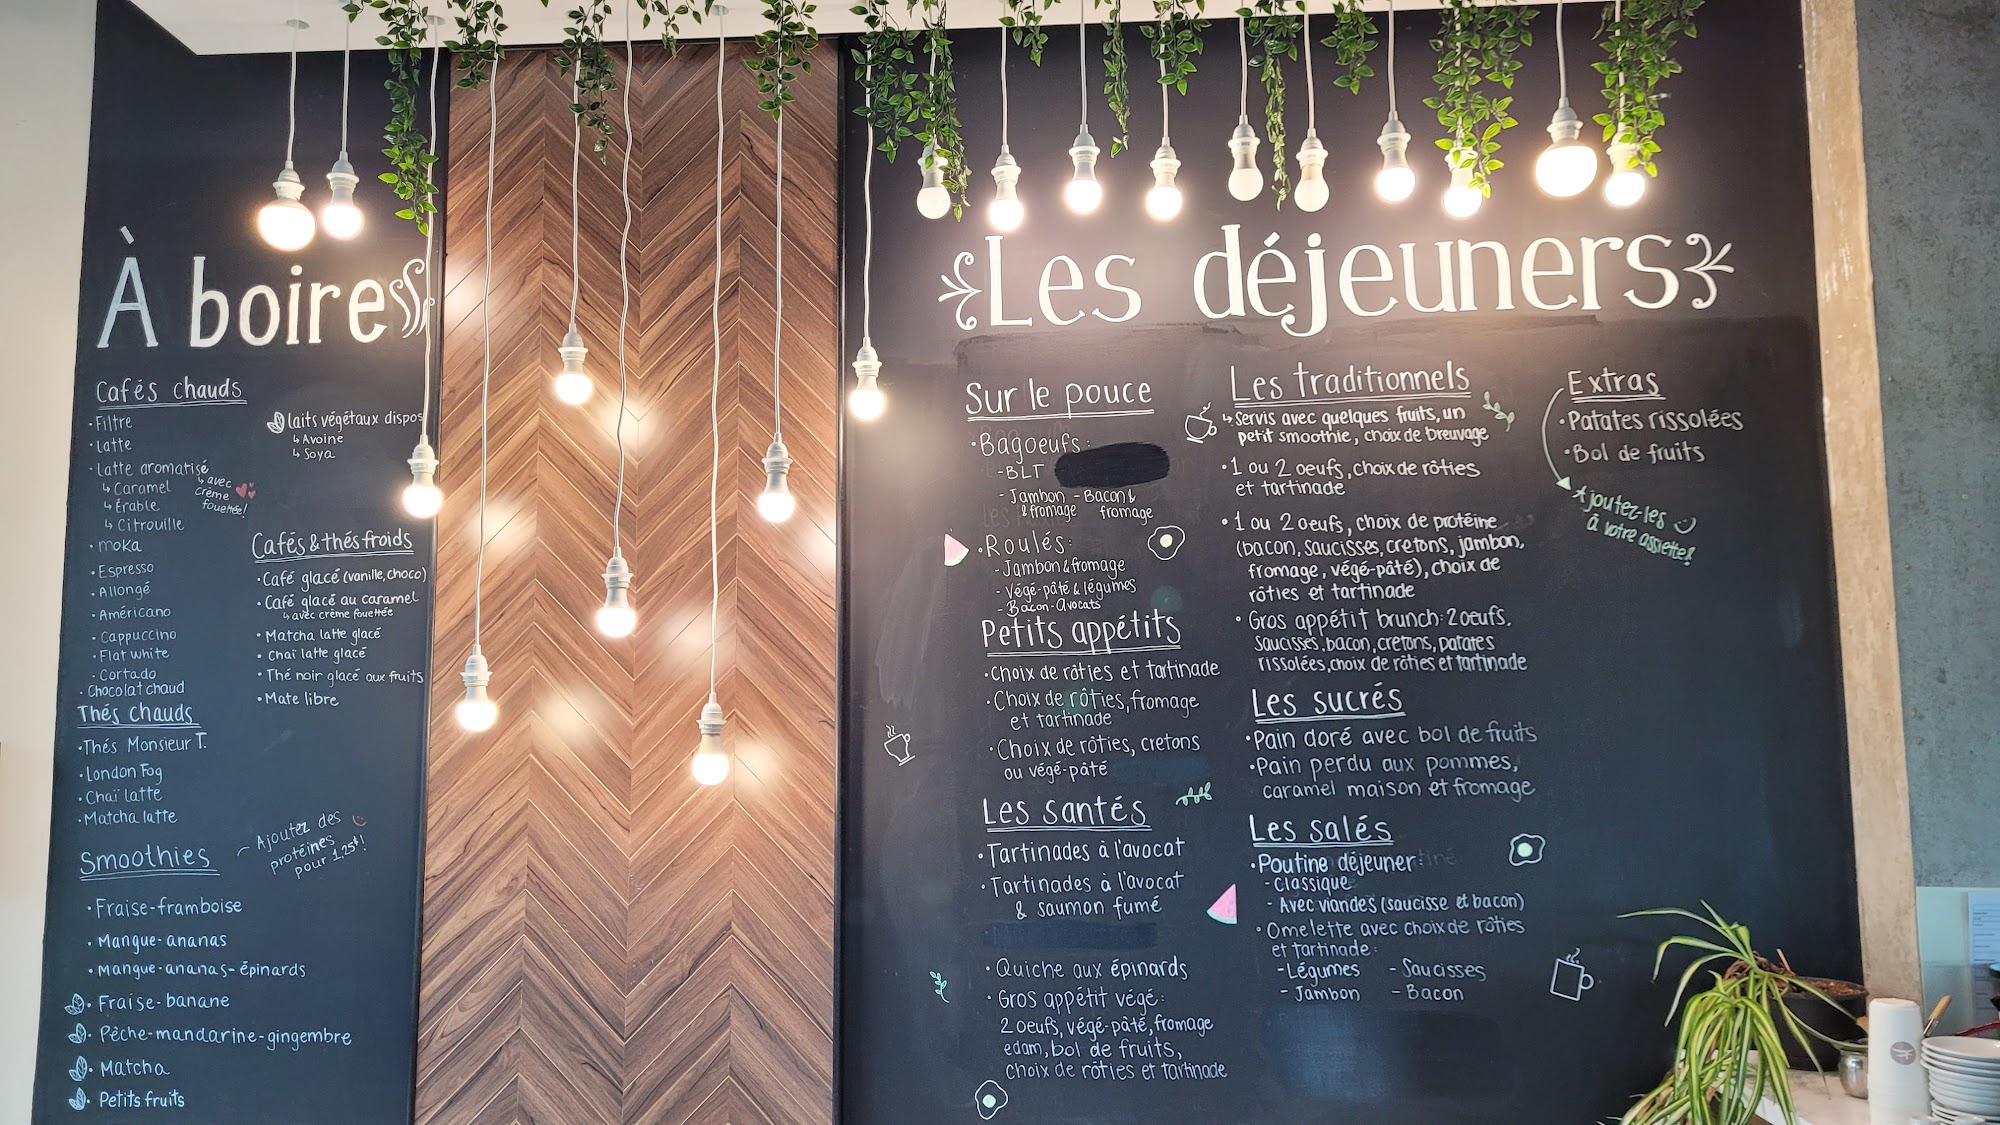 À boire
Cafés chauds
• Filtre
• latte
• latte aromatisé
↳ Caramel
↳ Érable
↳ Citrouille
↳ avec
crème
fouettée!
• moka
• Espresso
• Allongé
• Américano
• Cappuccino
• Flat white
• Cortado
• Chocolat chaud
laits végétaux dispos
↳ Avoine
↳ Soya
Cafés & thés froids
• Café glacé (vanille, choco)
• Café glacé au caramel
↳ avec crème fouettée
• Matcha latte glacé
• Chaï latte glacé
• Thé noir glacé aux fruits
• Mate libre
Thés chauds
• Thés Monsieur T.
• London Fog
• Chaï latte
• Matcha latte
Smoothies
Ajoutez des
protéines
pour 1,25$!
• Fraise-framboise
• Mangue-ananas
• Mangue-ananas-épinards
• Fraise-banane
• Pêche-mandarine-gingembre
• Matcha
• Petits fruits
Les déjeuners
Sur le pouce
• Bagoeufs:
- BLT
- Jambon - Bacon &
& fromage fromage
• Roulés:
- Jambon & fromage
- Végé-pâté & légumes
- Bacon-avocats
Petits appétits
• Choix de rôties et tartinade
• Choix de rôties, fromage
et tartinade
• Choix de rôties, cretons
ou végé-pâté
Les santés
• Tartinades à l'avocat
• Tartinades à l'avocat
& saumon fumé
• Quiche aux épinards
• Gros appétit végé:
2 oeufs, végé-pâté, fromage
edam, bol de fruits,
choix de rôties et tartinade
Les traditionnels
↳ Servis avec quelques fruits, un
petit smoothie, choix de breuvage
• 1 ou 2 oeufs, choix de rôties
et tartinade
• 1 ou 2 oeufs, choix de protéine
(bacon, saucisses, cretons, jambon,
fromage, végé-pâté), choix de
rôties et tartinade
• Gros appétit brunch: 2 oeufs,
saucisses, bacon, cretons, patates
rissolées, choix de rôties et tartinade
Les sucrés
• Pain doré avec bol de fruits
• Pain perdu aux pommes,
caramel maison et fromage
Les salés
• Poutine déjeuner:
- Classique
- Avec viandes (saucisse et bacon)
• Omelette avec choix de rôties
et tartinade:
- Légumes - Saucisses
- Jambon - Bacon
Extras
• Patates rissolées
• Bol de fruits
Ajoutez-les
à votre assiette!